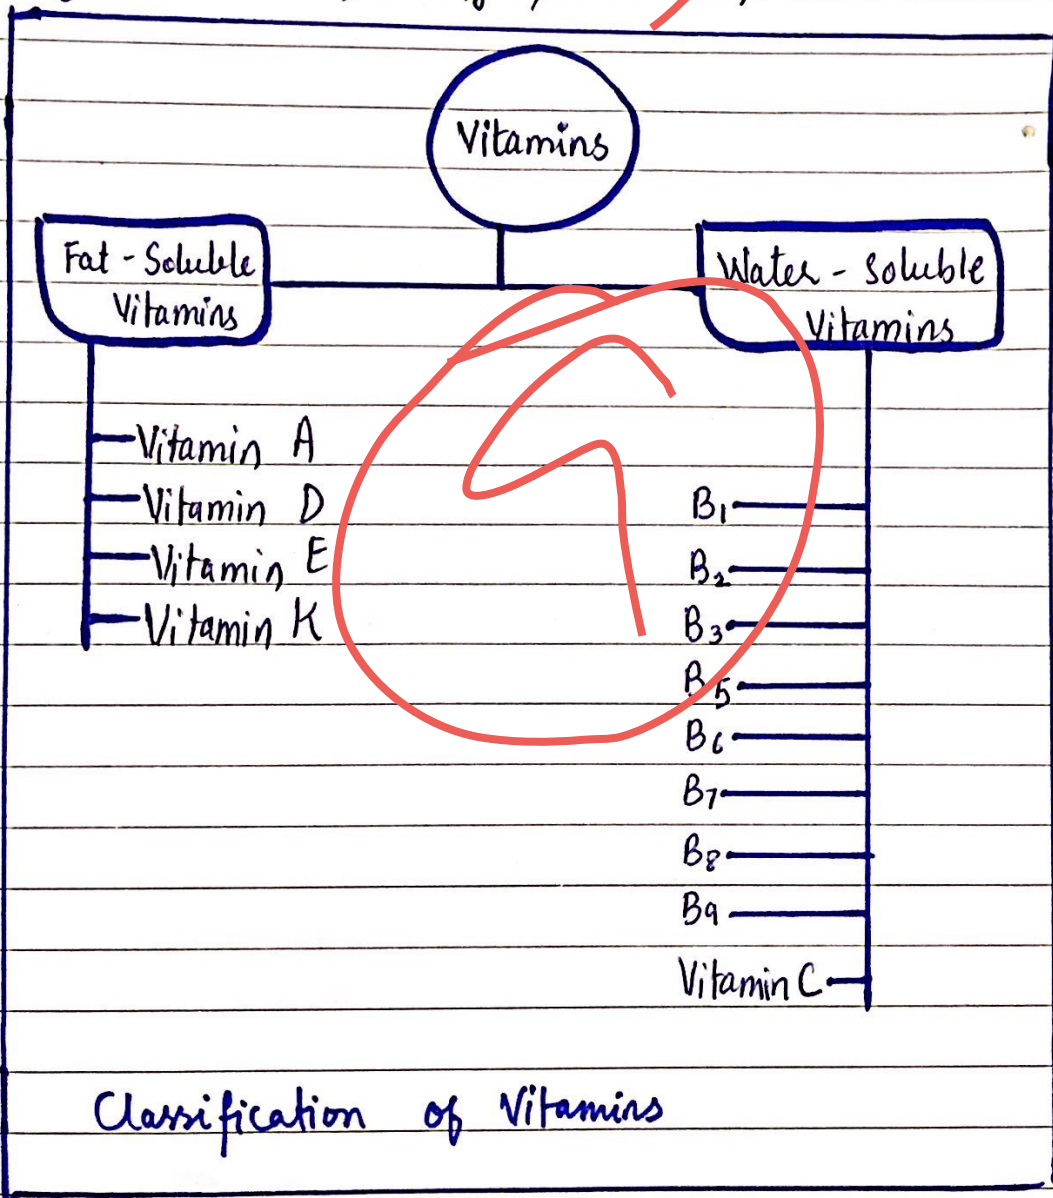 Vitamins
Fat - Soluble
Vitamins
Water - Soluble
Vitamins
Vitamin A
Vitamin D
Vitamin E
Vitamin K
B1
B2
B3
B5
B6
B7
B8
B9
Vitamin C
Classification of Vitamins